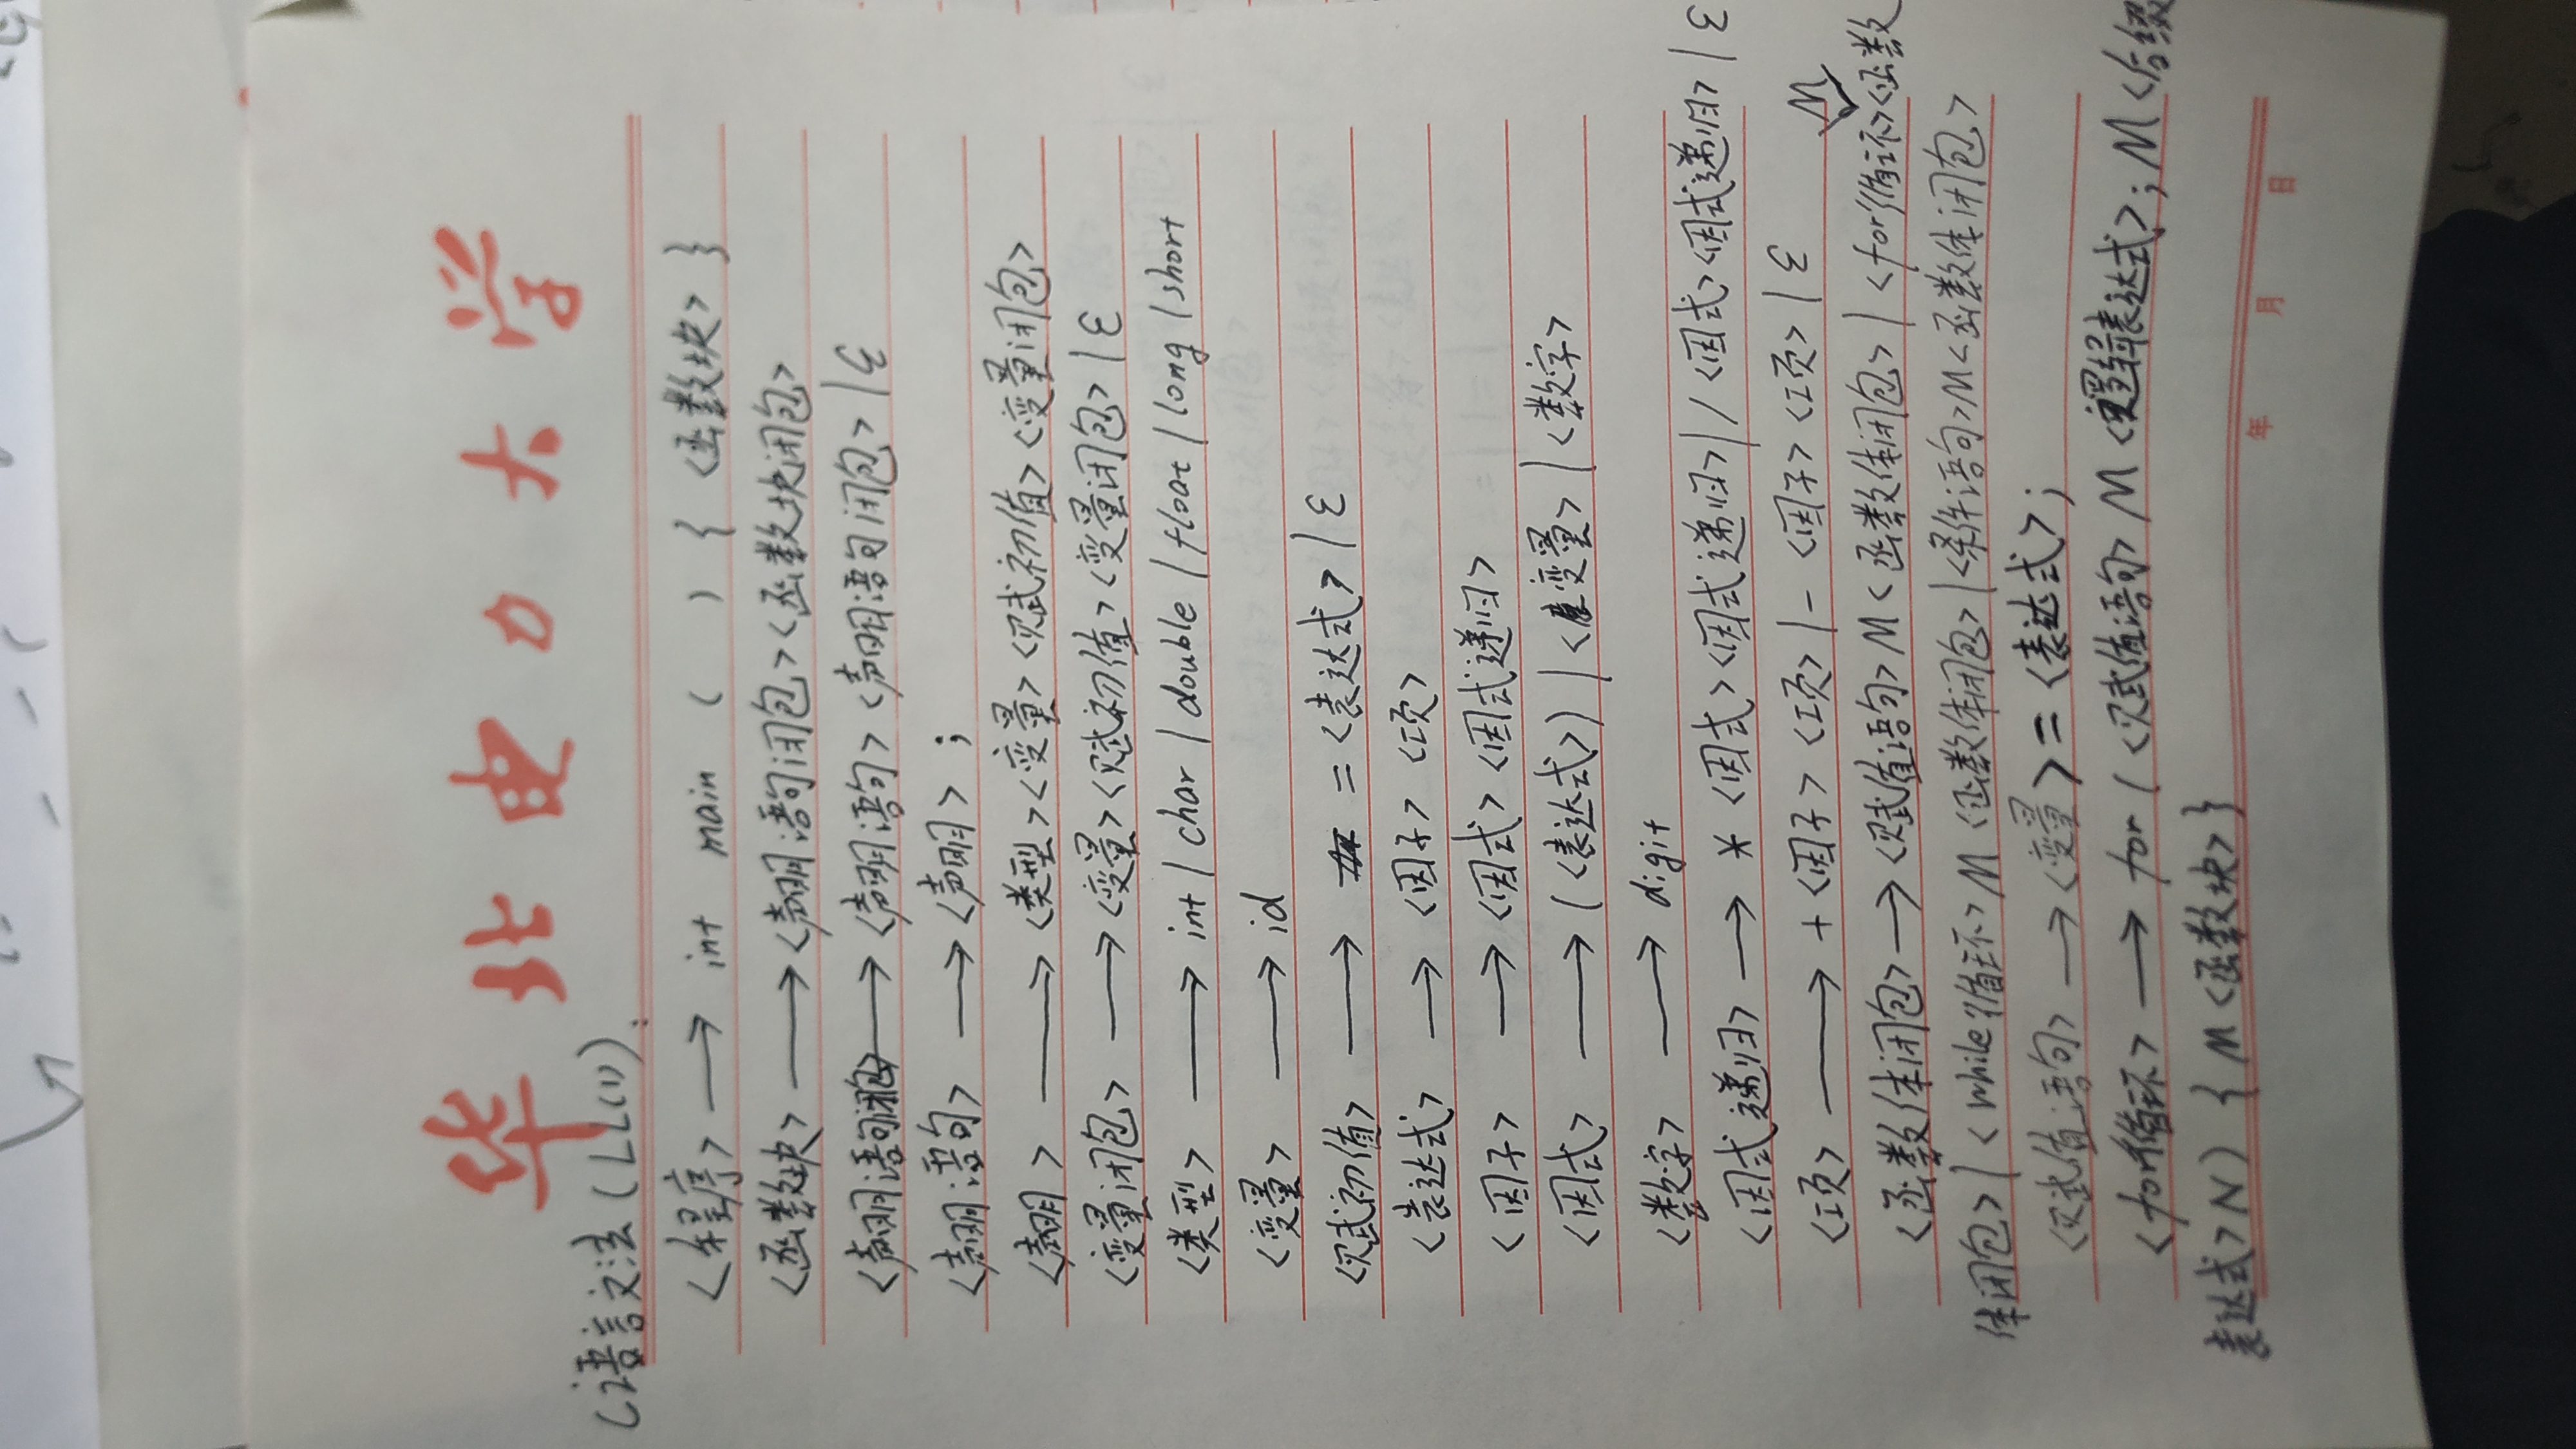 华北电力大学
C语言文法(LL(1)):
<程序> → int main ( ) { <函数块> }
<函数块> → <声明语句闭包><函数块闭包>
<声明语句闭包> → <声明语句> <声明语句闭包> | ε
<声明语句> → <声明> ;
<声明> → <类型><变量><赋初值><变量闭包>
<变量闭包> → <变量><赋初值><变量闭包> | ε
<类型> → int | char | double | float | long | short
<变量> → id
<赋初值> → = <表达式> | ε
<表达式> → <因子> <项>
<因子> → <因式> <因式递归>
<因式> → (<表达式>) | <变量> | <数字>
<数字> → digit
<因式递归> → * <因式><因式递归> | / <因式><因式递归> | ε
<项> → + <因子> <项> | - <因子> <项> | ε
M
<函数体闭包> → <赋值语句> M <函数体闭包> | <for循环><函数
体闭包> | <while循环> M <函数体闭包> | <条件语句> M <函数体闭包>
<赋值语句> → <变量> = <表达式>;
<for循环> → for ( <赋值语句> M <逻辑表达式>; M <后缀
表达式> N ) { M <函数块> }
年 月 日